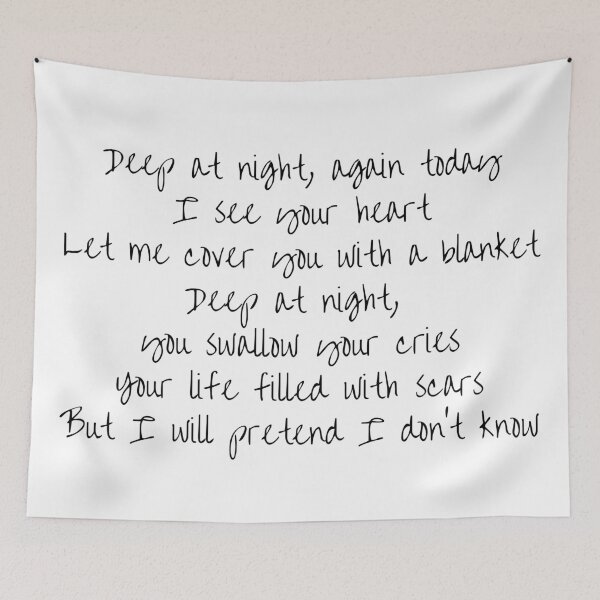 Deep at night, again today
I see your heart
Let me cover you with a blanket
Deep at night,
you swallow your cries
your life filled with scars
But I will pretend I don't know